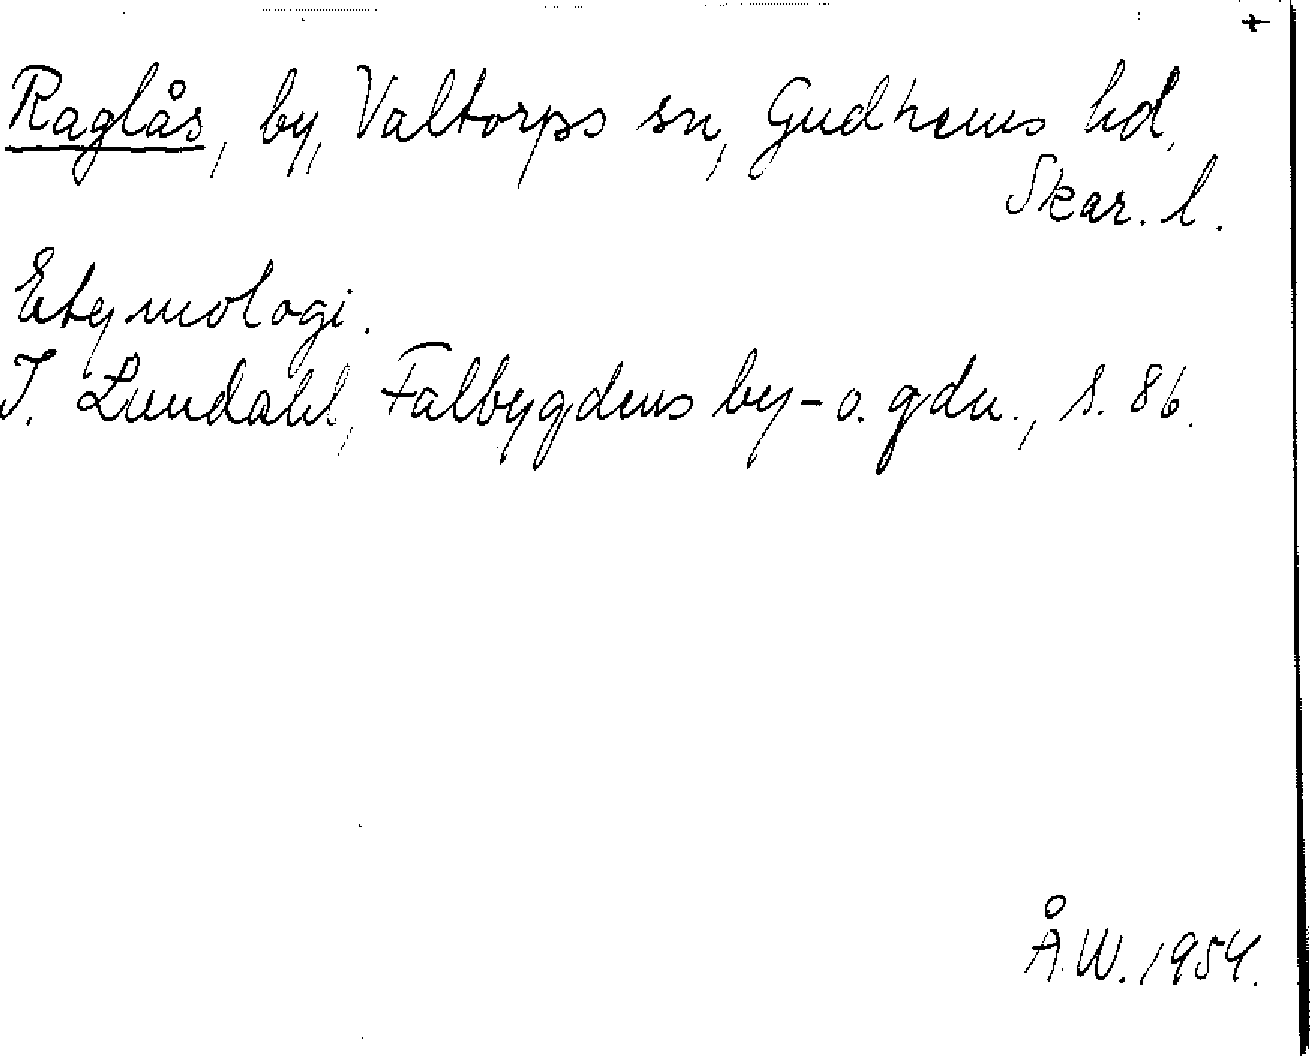 Raglås, by, Valtorps sn, Gudhems hd,
Skar. l.
Etymologi.
I. Lundahl, Falbygdens by- o. gdn., s. 86.
Å.W. 1954.